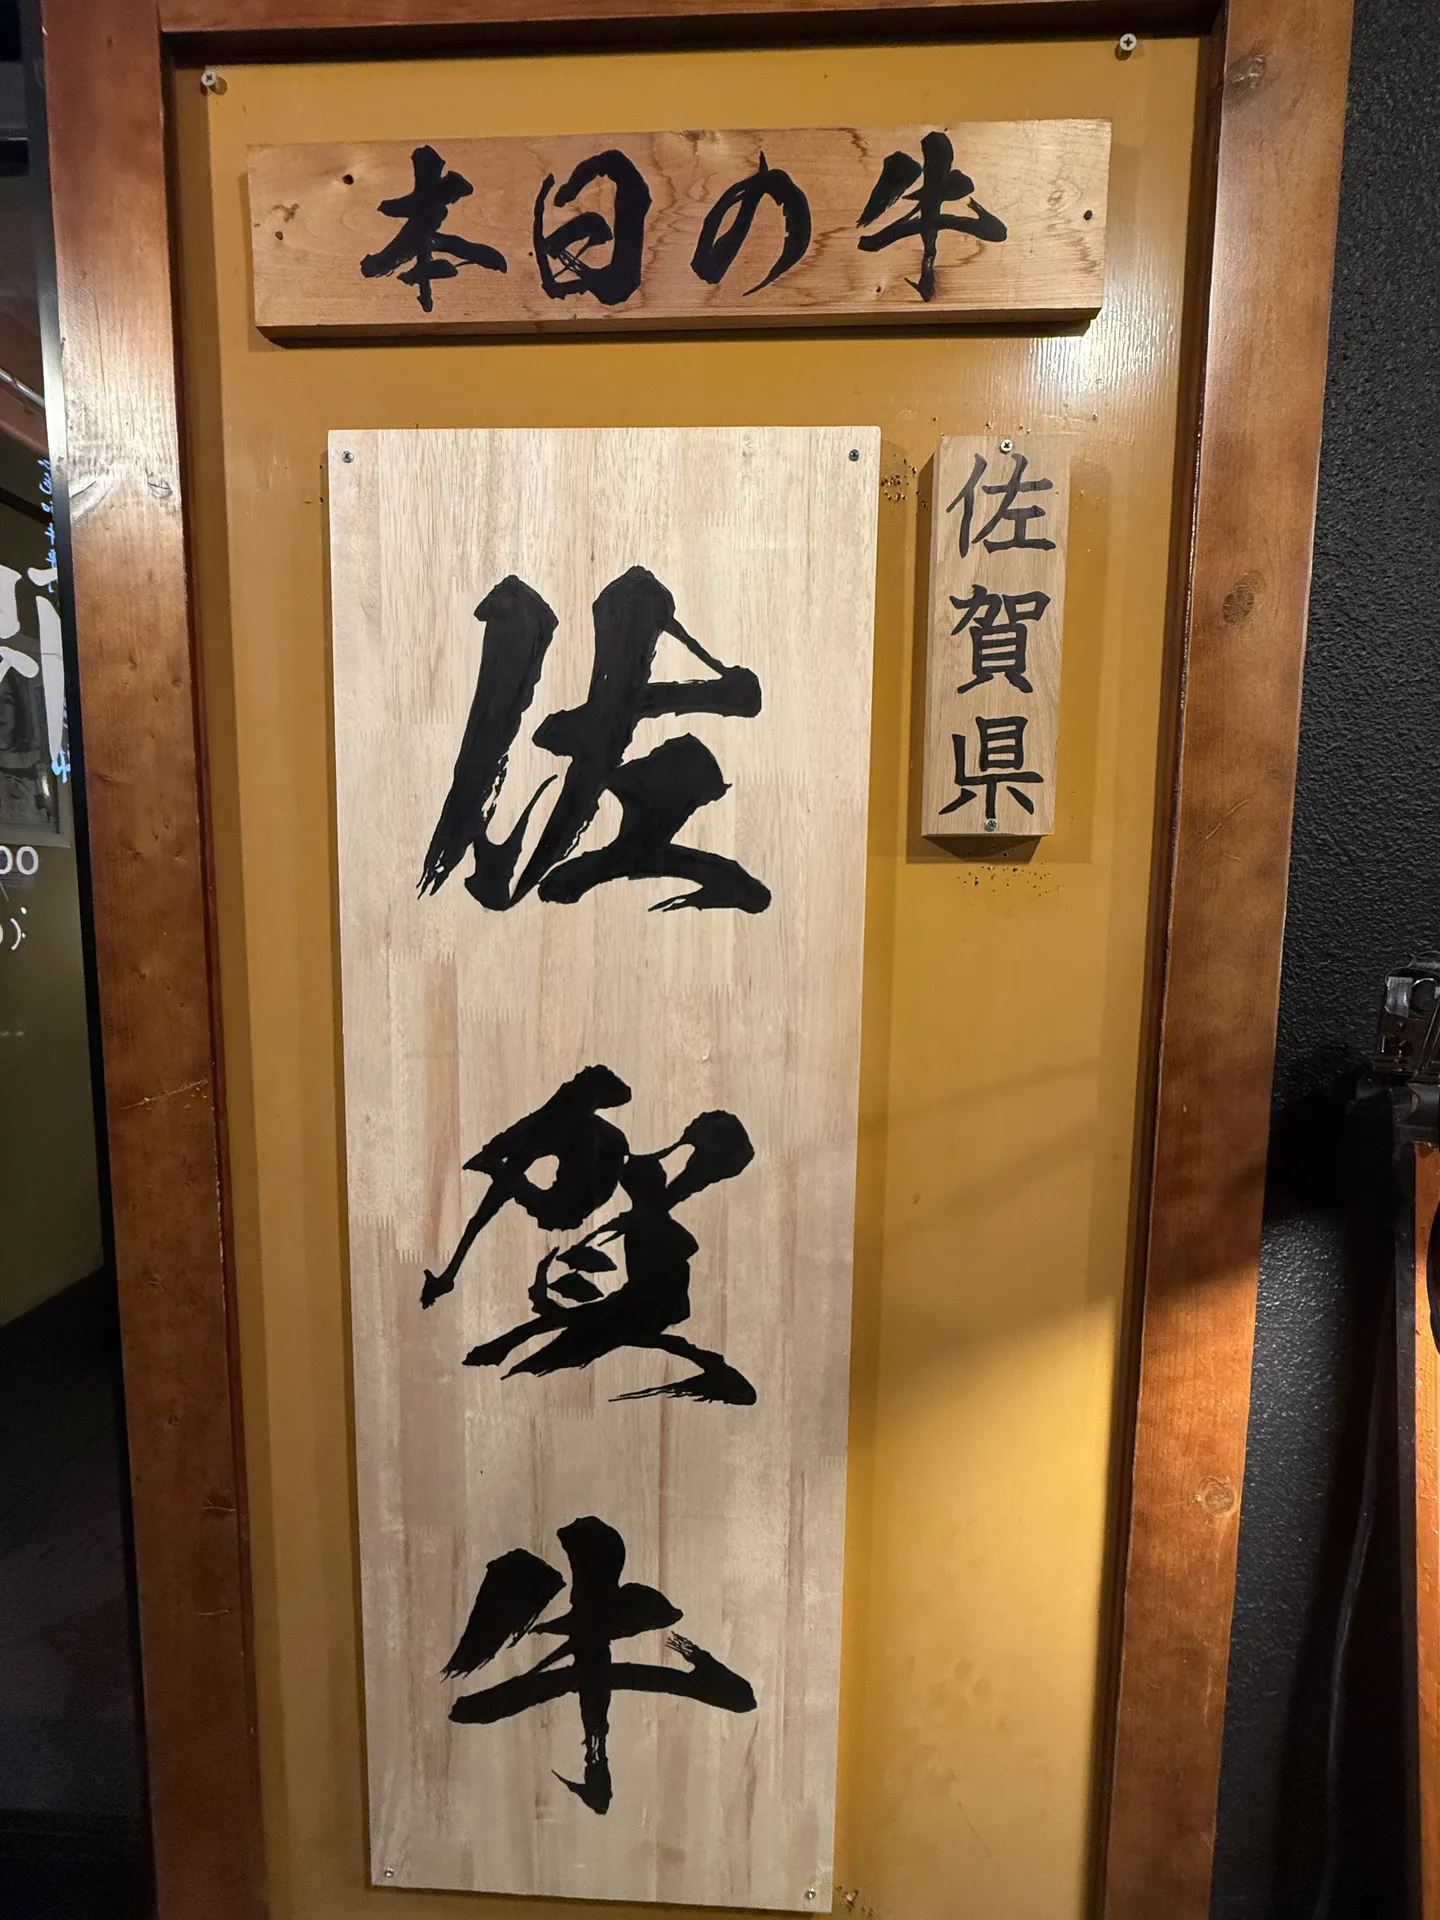 本日の牛
佐賀県
佐賀牛
00